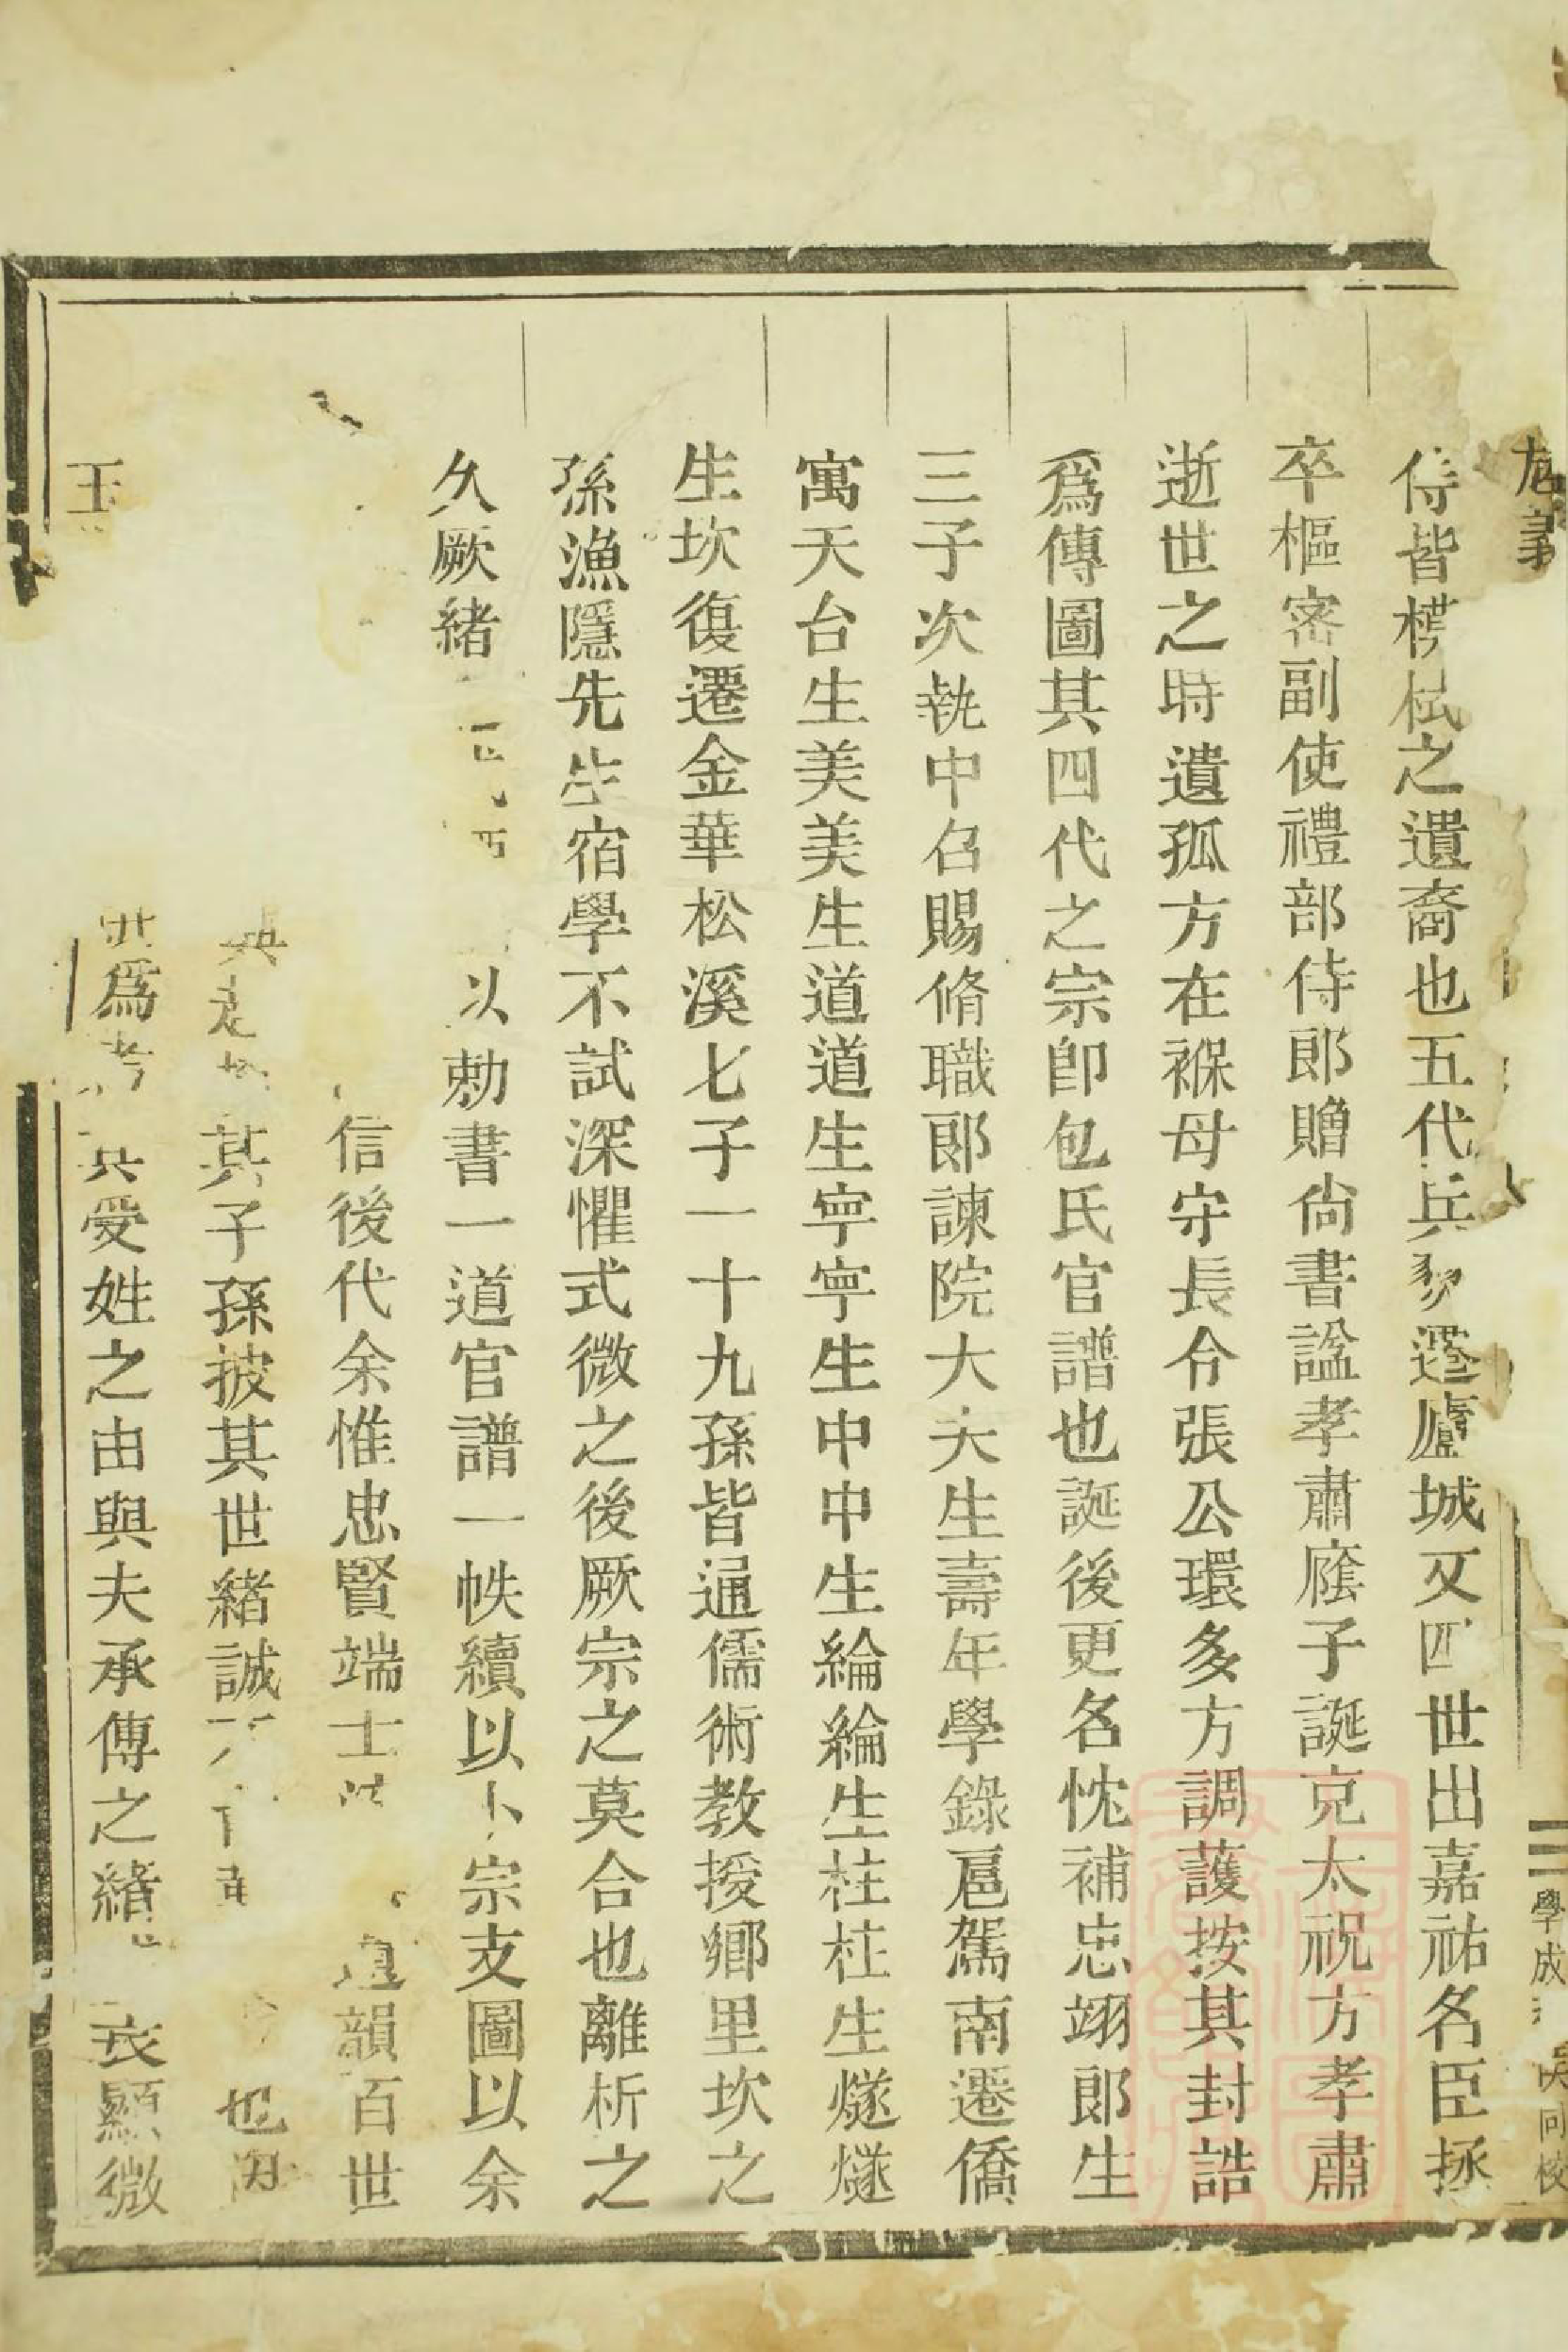 侍皆樗松之遺裔也五代兵遷廬城又四世出嘉祐名臣拯
卒樞密副使禮部侍郎贈尙書諡孝肅廕子誕克太祝方孝肅
逝世之時遺孤方在褓母守長令張公環多方調護按其封誥
爲傳圖其四代之宗卽包氏官譜也誕後更名忱補忠翊郞生
三子次執中召賜脩職郞諫院大夫生壽年學錄扈駕南遷僑
寓天台生美美生道道生寧寧生中中生綸綸生柱柱生燧燧
生坎復遷金華松溪七子一十九孫皆通儒術教授鄉里坎之
孫漁隱先生宿學不試深懼式微之後厥宗之莫合也離析之
久厥緒以勅書一道官譜一帙續以宗支圖以余
信後代余惟忠賢端士韻百世
其子孫披其世緒誠也因
爲其受姓之由與夫承傳之緒表顯微
學成
同校